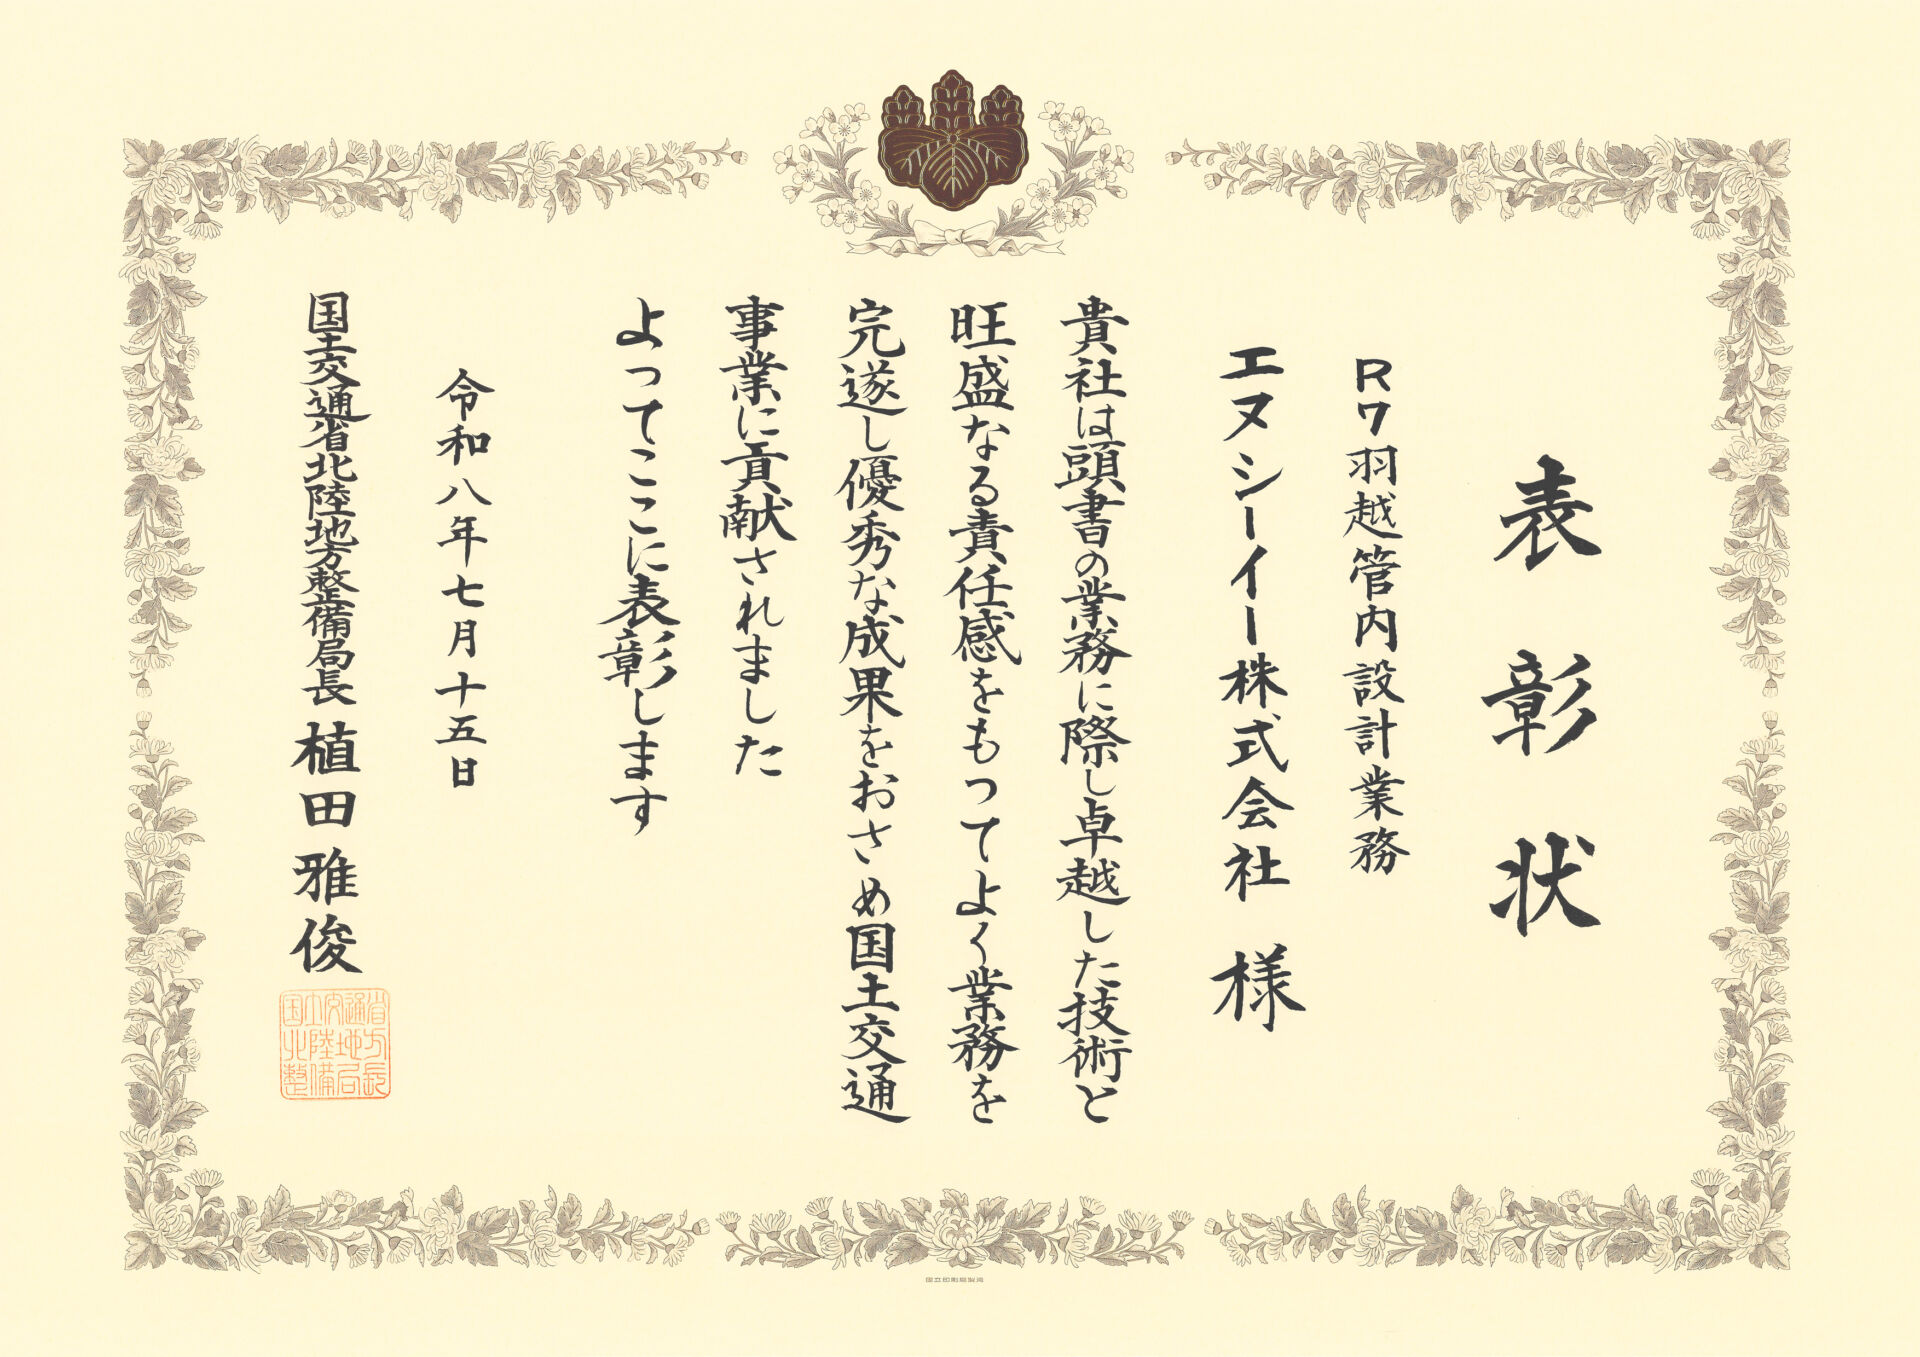 表彰状
R7羽越管内設計業務
エヌシーイー株式会社 様
貴社は頭書の業務に際し卓越した技術と
旺盛なる責任感をもつてよく業務を
完遂し優秀な成果をおさめ国土交通
事業に貢献されました
よってここに表彰します
令和八年七月十五日
国土交通省北陸地方整備局長 植田雅俊
国土交通省
北陸地方
整備局長
国立印刷局製造